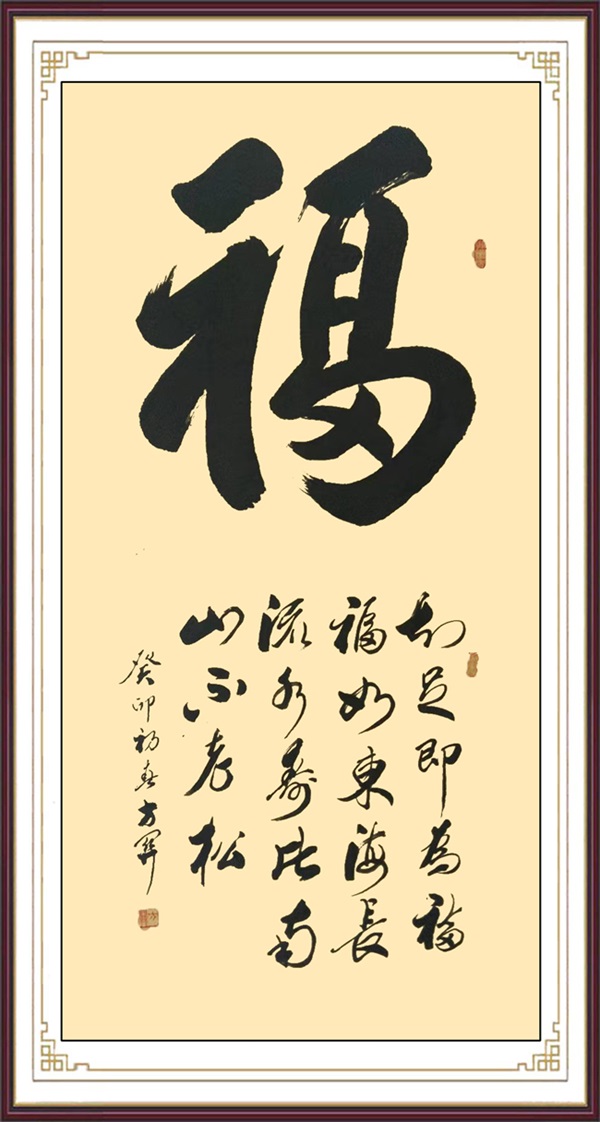 福
知足即为福
福如東海長
流水寿比南
山不老松
癸卯初春方军